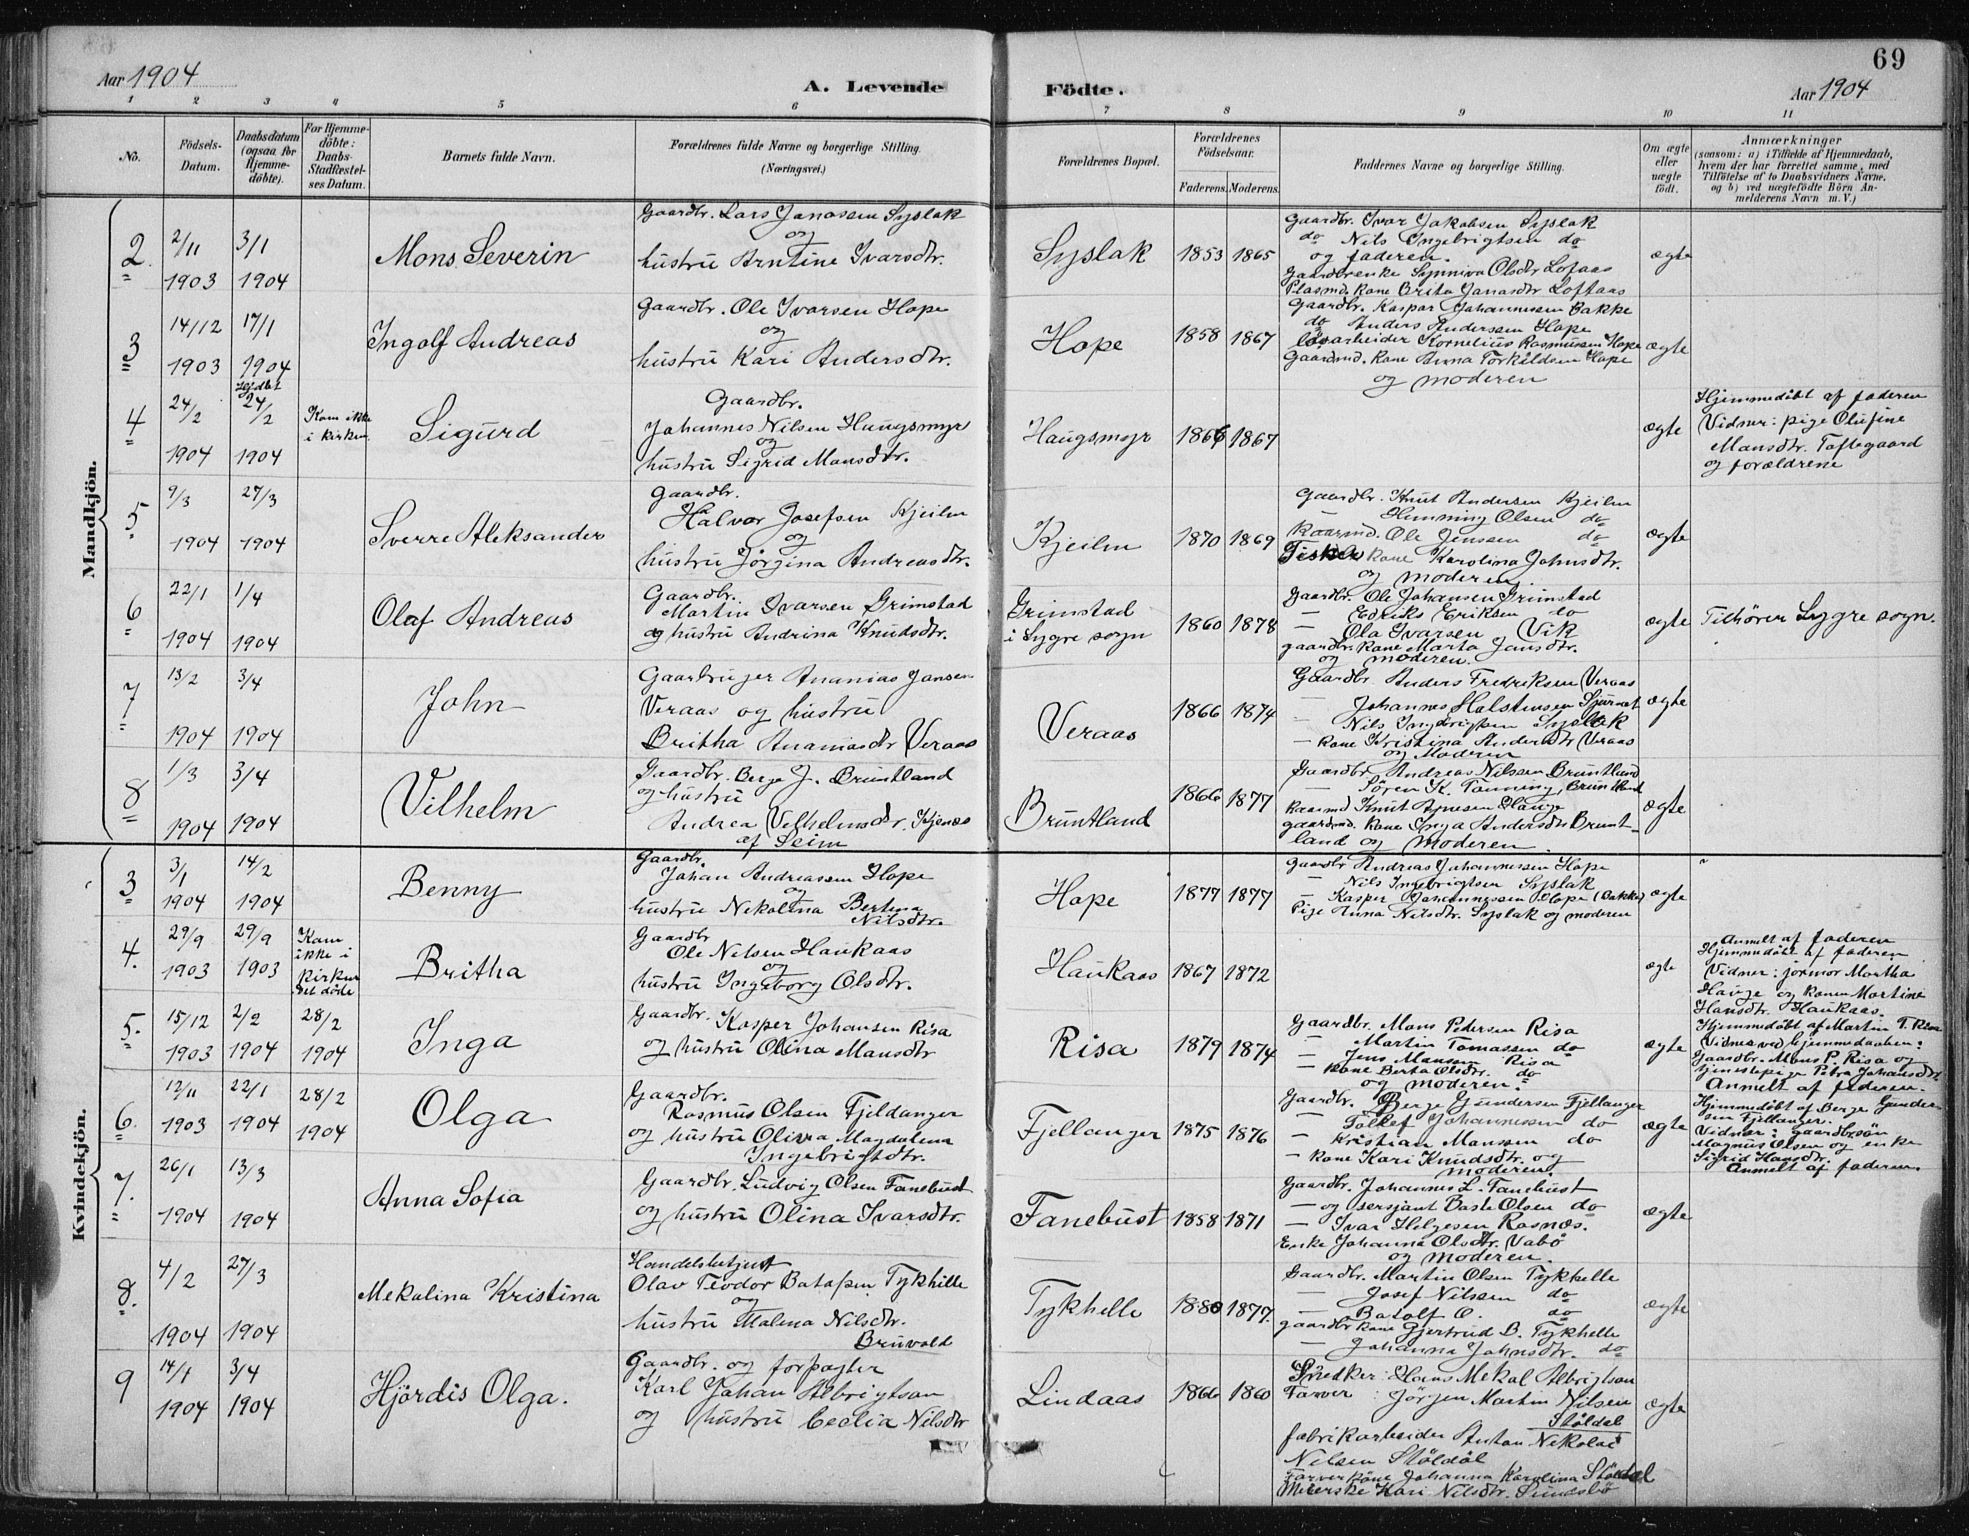 69
Aar 1904
A. Levende Födte.
Aar 1904
1 2 3 4 5 6 7 8 9 10 11
No.
Födsels-Datum.
Daabsdatum (ogsaa for Hjemme-döbte).
For Hjemme-döbte: Daabs-Stadfæstel-ses Datum.
Barnets fulde Navn.
Forældrenes fulde Navne og borgerlige Stilling. (Næringsvei.)
Forældrenes Bopæl.
Forældrenes Födselsaar.
Faderens. Moderens.
Faddernes Navne og borgerlige Stilling.
Om ægte eller uægte födt.
Anmærkninger
(saasom: a) i Tilfælde af Hjemmedaab,
hvem der har forrettet samme, med
Tilföielse af to Daabsvidners Navne,
og b) ved uægtefödte Börn An-
melderens Navn m. V.)
Mandkjön.
2
2/11 1903
3/1 1904
Mons Severin
Gaardbr. Lars Janassen Syslak
og
hustru Arntine Ivarsdtr.
Syslak
1853 1865
Gaardbr. Ivar Jakobsen Syslak
do Nils Ingebrigtsen do
og faderen.
Gaardbrenke Synniva Olsdtr Lofaas
Plasmd. kone Brita Janasdtr Loftaas
ægte
3
14/12 1903
17/1 1904
Ingolf Andreas
Gaardbr. Ole Ivarsen Hope
og
hustru Kari Andersdtr.
Hope
1858 1867
Gaardbr. Kaspar Johannesen Bakke
do Anders Andersen Hope
lösarbeider Kornelius Rasmussen Hope
Gaardmd. kone Anna Torkildsen Hope
og moderen
ægte
4
24/2 1904
Hjdbt 24/2 1904
Kom ikke i kirken
Sigurd
Gaardbr.
Johannes Nilsen Haugsmyr
og
hustru Sigrid Monsdtr.
Haugsmyr
1866 1867
ægte
Hjemmedöbt af faderen
Vidner: pige Olufine
Mansdtr. Toftegaard
og forældrene
5
9/3 1904
27/3 1904
Sverre Aleksander
Gaardbr.
Halvor Josefsen Kjeilen
og
hustru Jörgina Andreasdtr.
Kjeilen
1870 1869
Gaardbr. Knut Andersen Kjeilen
Hemming Olsen do
Kaarmd. Ole Jenssen do
Fisker kone Karolina Johnsdtr.
og moderen.
ægte
6
22/1 1904
1/4 1904
Olaf Andreas
Gaardbr.
Martin Ivarsen Grimstad
og hustru Andrina Knudsdtr.
Grimstad
i Lygre sogn
1860 1878
Gaardbr. Ole Johansen Grimstad
— Endriks Eriksen do
— Ola Ivarsen Vik
gaardbr. kone Marta Jansdtr.
og moderen.
ægte
Tilhörer Lygre sogn.
7
13/2 1904
3/4 1904
John
Gaarbruger Ananias Jansen
Veraas og hustru
Britha Ananiasdtr Veraas
Veraas
1866 1874
Gaardbr. Anders Fredriksen Veraas
— Johannes Halstensen
— Nils Ingebrigtsen Syslak
— kone Kristina Andersdtr Veraas
og Moderen
ægte
8
1/3 1904
3/4 1904
Vilhelm
Gaardbr. Berge J. Bruntland
og hustru
Andrea Vilhelmsdtr. Kjenes
af Seim
Bruntland
1866 1877
Gaardbr Andreas Nilssen Bruntland
— Sören K. Tonning, Bruntland
kaarmd Knut Hauge
gaardmd. kone Inga Andersdtr Brunt-
land og moderen.
ægte
Kvindekjön.
3
3/1 1904
14/2 1904
Benny
Gaardbr.
Johan Andreassen Hope
og
hustru Nekolina Bertina
Nilsdtr.
Hope
1877 1877
Gaardbr Andreas Johannessen Hope
— Nils Ingebrigtsen Syslak
— Kasper Johannessen Hope (Bakke)
Pige Anna Nilsdtr. Syslak og moderen
ægte
4.
29/9 1903
29/9 1903
Kom ikke i kirken det döde
Britha
Gaardbr
Ole Nilsen Haukaas
og
hustru Ingeborg Olsdtr.
Haukaas
1867 1872
ægte
Anmelt af faderen
Hjemmedöbt af faderen
Vidner: jormor Martha
Hauge og konen Martine
Hansdtr. Haukaas.
5.
15/12 1903
2/2 1904
28/2 1904
Inga
Gaardbr. Kasper Johansen Risa
og hustru Olina Mansdtr
Risa
1879 1874
Gaardbr. Mons Pedersen Risa
— Martin Tomassen do
— Jens Manssen Risa
— kone Berta Olsdtr. do
og moderen.
ægte
Hjemmedöbt af Martin T. Risa
Vidner ved hjemmedaaben:
Gaardbr. Mons P. Risa og
tjenestepige Petra Johansdtr
Anmelt af faderen.
6.
12/11 1903
22/1 1904
28/2 1904
Olga
Gaardbr.
Rasmus Olsen Fjeldanger
og hustru Oliva Magdalena
Ingebrigtdtr.
Fjellanger
1875 1876
Gaardbr. Berge Gundersen Fjellanger
— Tollef Johannessen do
— Kristian Manssen do
— kone Kari Knudsdtr. og
moderen.
ægte
Hjemmedöbt af Berge Gunder-
sen Fjellanger.
Vidner: gaardbrsön
Magnus Olsen og enke
Sigrid Hansdtr.
Anmelt af faderen.
7.
26/1 1904
13/3 1904
Anna Sofia
Gaardbr. Ludvig Olsen Fanebust
og hustru Olina Ivarsdtr.
Fanebust
1858 1871
Gaardbr. Johannes L. Fanebust
— og sersjant Baste Olsen do
— Ivar Helgesen Rosnæs.
Enke Johanna Olsdtr. Vabö
og moderen.
ægte
8.
4/2 1904
27/3 1904
Mekalina Kristina
Handelsbetjent
Olav Teodor Batafsen Tykhelle
og
hustru Malena Nilsdtr.
Bruvold
Tykhelle
1880 1877.
Gaardbr. Martin Olsen Tykhelle
— Josef Nilssen do
— Batolf O. do
gaardbr kone Gjertrud B. Tykhelle
— Johanna Johnsdtr. do
ægte
9
14/1 1904
3/4 1904
Hjördis Olga.
Gaardbr. og forpagter
Karl Johan Albrigtson
og hustru Cecilia Nilsdtr
Lindaas
1866 1860
Snedker: Hans Mekal Albrigtson
Farver: Jörgen Martin Nilsen
Stöldal
fabrikarbeider Anton Nikolai
Nilsen Stöldal
Farverkone Johanna Karolina Stöldal
Meierske Kari Nilsdtr. Sundsbö
ægte